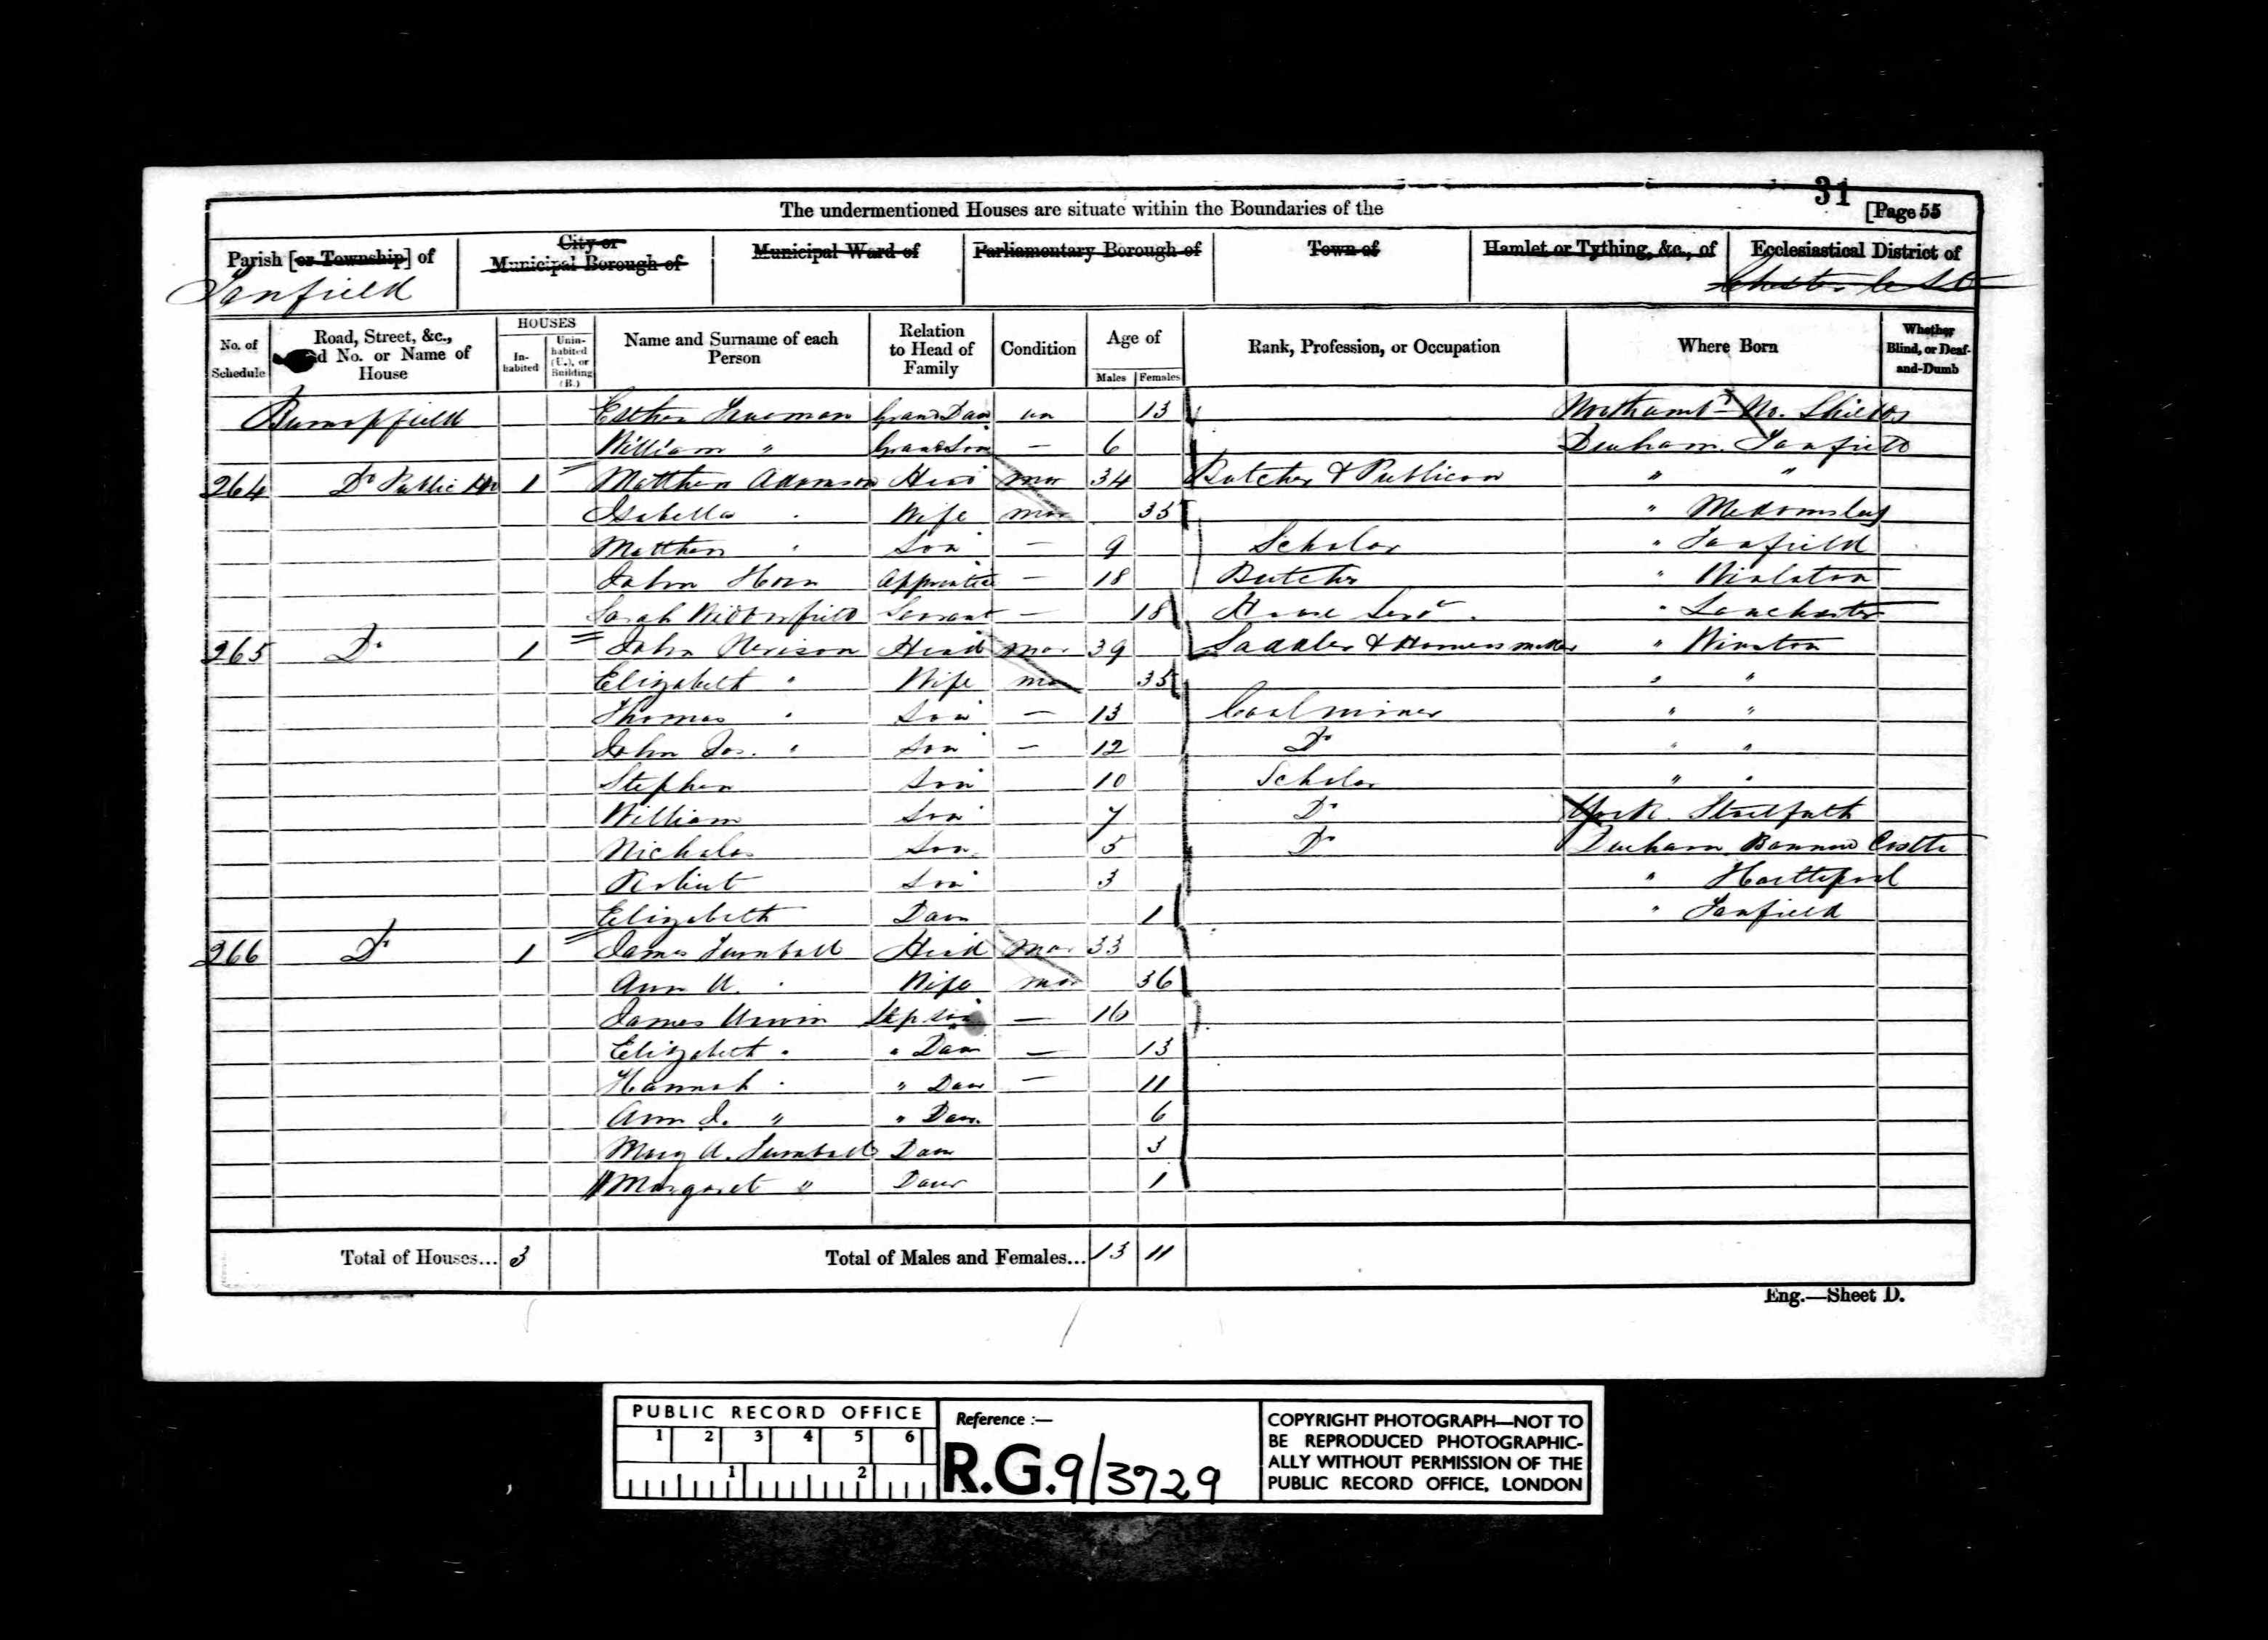 The undermentioned Houses are situate within the Boundaries of the
31
[Page 55
Parish [or Township] of
City or Municipal Borough of
Municipal Ward of
Parliamentary Borough of
Town of
Hamlet or Tything, &c., of
Ecclesiastical District of
Tanfield
Chester le St
No. of Schedule
Road, Street, &c., d No. or Name of House
HOUSES
In-habited
Unin-habited (U.), or Building (B.)
Name and Surname of each Person
Relation to Head of Family
Condition
Age of
Males
Females
Rank, Profession, or Occupation
Where Born
Whether Blind, or Deaf-and-Dumb
Burnopfield Esther Grand Daur un 13 Northumbd No. Shields
William " Grand Son — 6 Durham Tanfield
264 Do Public Hs 1 Matthew Adamson Head mar 34 Butcher & Publican " "
Isabella " Wife mar 35 " Medomsley
Matthew " Son — 9 Scholar " Tanfield
John Horn Apprentice — 18 Butcher " Winlaton
Sarah Servant — 18 House Servt " Lanchester
265 Do 1 John Nevison Head mar 39 Saddler & Harness maker " Winston
Elizabeth " Wife mar 35 " "
Thomas " Son — 13 Coal miner " "
John Jos. " Son — 12 Do " "
Stephen Son 10 Scholar " "
William Son 7 Do York
Nicholas Son 5 Do Durham Barnard Castle
Robert Son 3 " Hartlepool
Elizabeth Daur 1 " Tanfield
266 Do 1 James Turnbull Head mar 33
Ann A. " Wife mar 36
James Urwin Step Son — 16
Elizabeth " " Daur — 13
Hannah " " Daur — 11
Ann J. " " Daur 6
Mary A. Turnbull Daur 3
Margaret " Daur 1
Total of Houses... 3
Total of Males and Females... 13 11
Eng.—Sheet D.
PUBLIC RECORD OFFICE
1 2 3 4 5 6
1 2
Reference :—
R.G. 9/3729
COPYRIGHT PHOTOGRAPH—NOT TO
BE REPRODUCED PHOTOGRAPHIC-
ALLY WITHOUT PERMISSION OF THE
PUBLIC RECORD OFFICE, LONDON